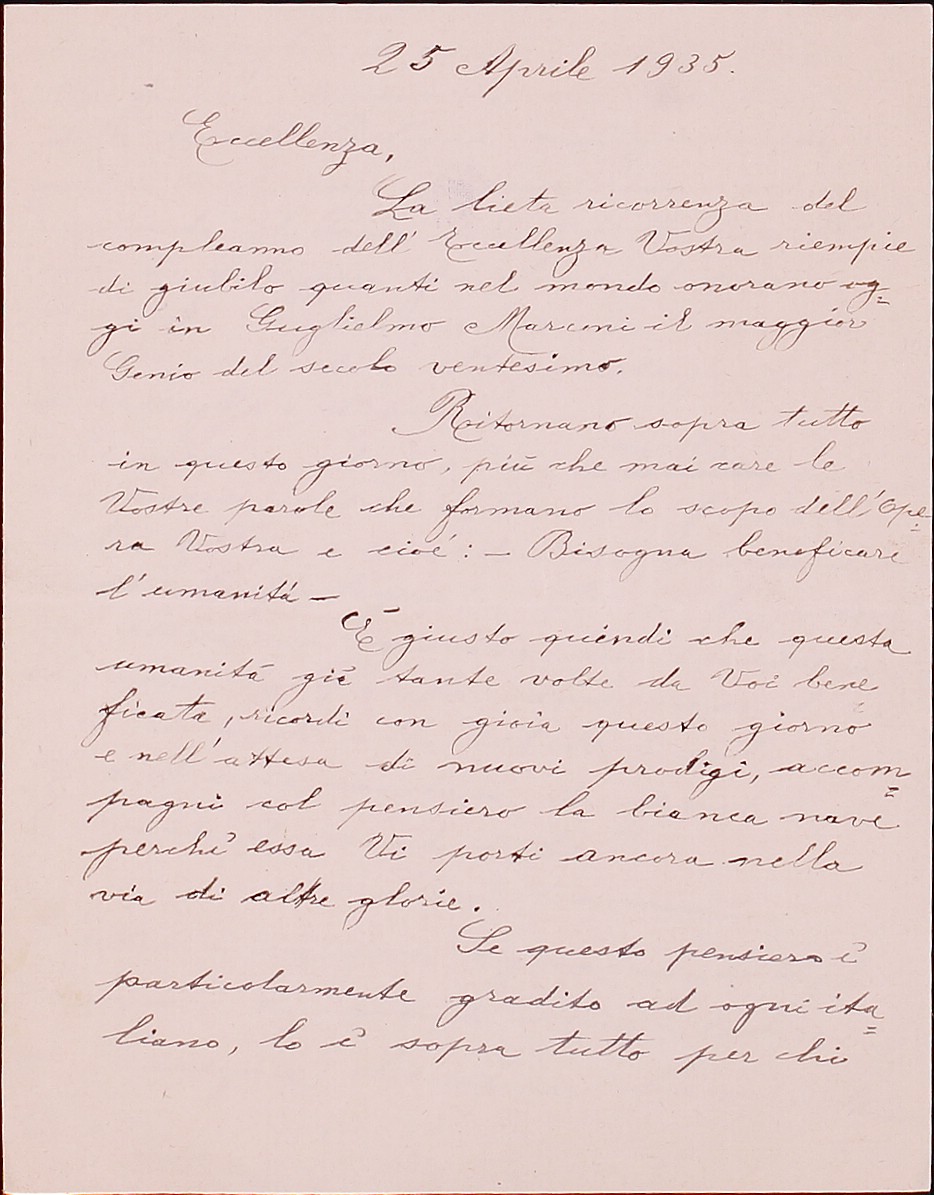 25 Aprile 1935.
Eccellenza,
La lieta ricorrenza del
compleanno dell'Eccellenza Vostra riempie
di giubilo quanti nel mondo onorano og=
gi in Guglielmo Marconi il maggior
Genio del secolo ventesimo.
Ritornano sopra tutto
in questo giorno, più che mai care le
Vostre parole che formano lo scopo dell'Ope=
ra Vostra e cioé: - Bisogna beneficare
l'umanitá -
É giusto quindi che questa
umanitá giá tante volte da Voi bene
ficata, ricordi con gioia questo giorno
e nell'attesa di nuovi prodigi, accom=
pagni col pensiero la bianca nave
perché essa Vi porti ancora nella
via di altre glorie.
Se questo pensiero é
particolarmente gradito ad ogni ita=
liano, lo é sopra tutto per chi